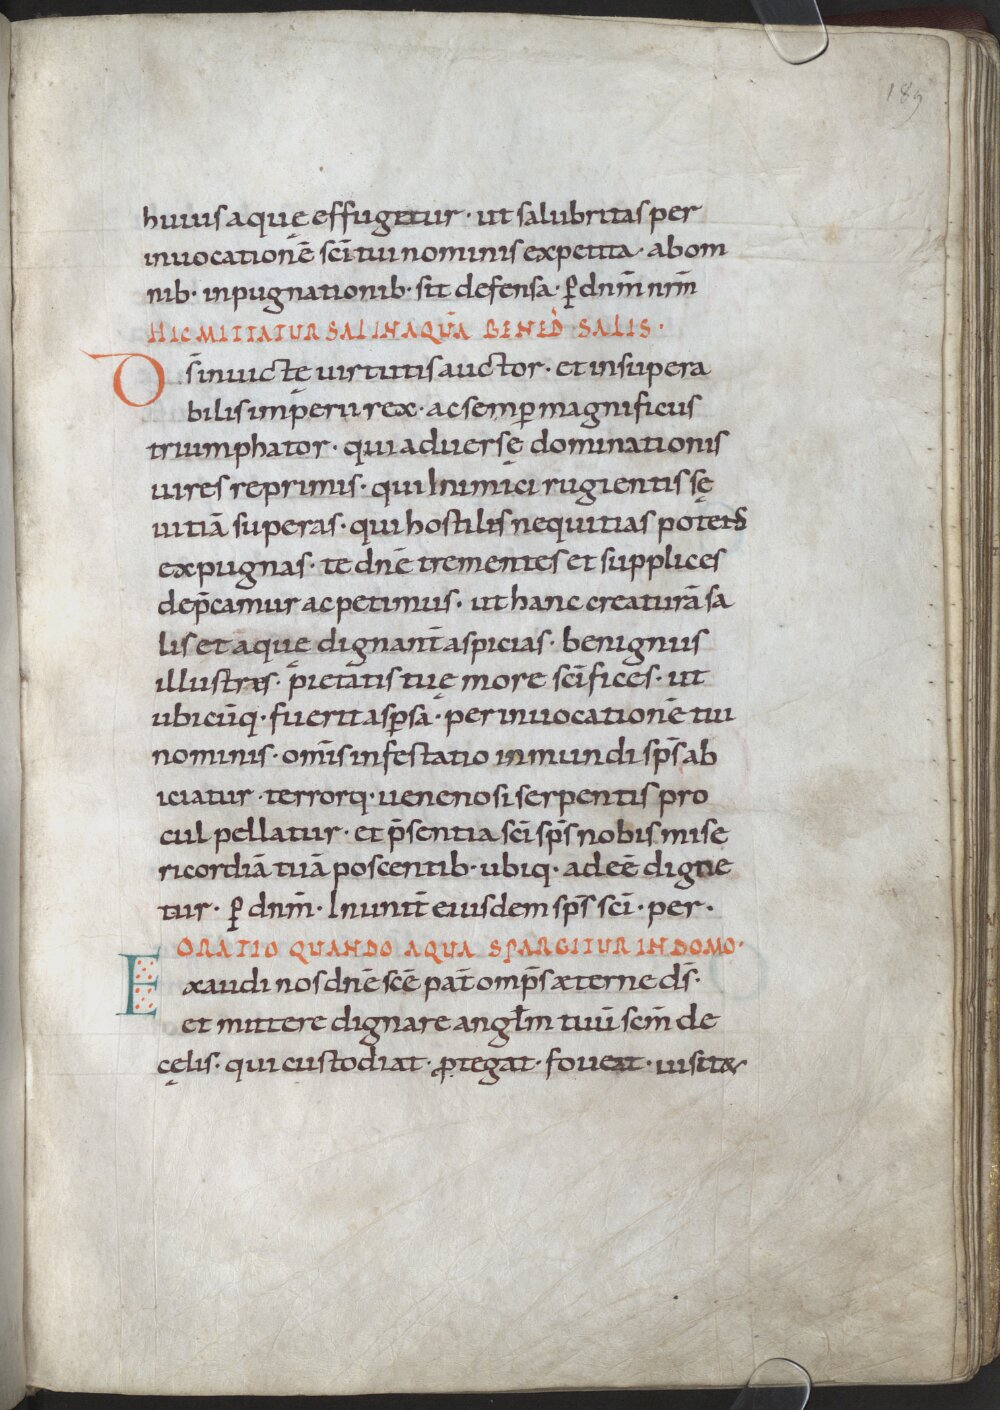 189
huius aquę effugetur · ut salubritas per
inuocationē sc̄i tui nominis expetita · ab om
nib· inpugnationib· sit defensa · ꝑ dn̄m nr̄m
HIC MITTATUR SAL IN AQUĀ BENED̄ SALIS ·
Ds̄ inuictę uirtutis auctor · et insupera
bilis imperii rex · ac semꝑ magnificus
triumphator · qui aduersę dominationis
uires reprimis · qui Inimici rugientis sę
uitiā superas · qui hostilis nequitias potens
expugnas · te dn̄e trementes et supplices
dep̄camur ac petimus · ut hanc creaturā sa
lis et aquę dignant̄ aspicias · benignus
illustres · pietatis tuę more sc̄ifices · ut
ubicūq· fuerit asꝑsa · per inuocationē tui
nominis · om̄is infestatio inmundi sp̄s ab
iciatur · terrorq· uenenosi serpentis pro
cul pellatur · et p̄sentia sc̄i sp̄s nobis mise
ricordiā tuā poscentib· ubiq· adeē digne
tur · ꝑ dn̄m · In unit̄ eiusdem sp̄s sc̄i · per ·
ORATIO QUANDO AQUA SPARGITUR IN DOMO ·
Exaudi nos dn̄e sc̄e pat̄ omp̄s æterne ds̄ ·
et mittere dignare angl̄m tuū sc̄m de
cęlis · qui custodiat · ꝓtegat · foueat · uisitet